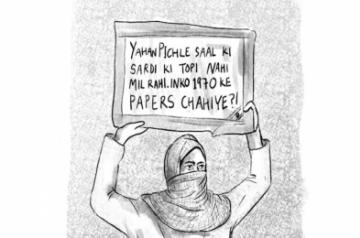 YAHAN PICHLE SAAL KI
SARDI KI TOPI NAHI
MIL RAHI. INKO 1970 KE
PAPERS CHAHIYE?!